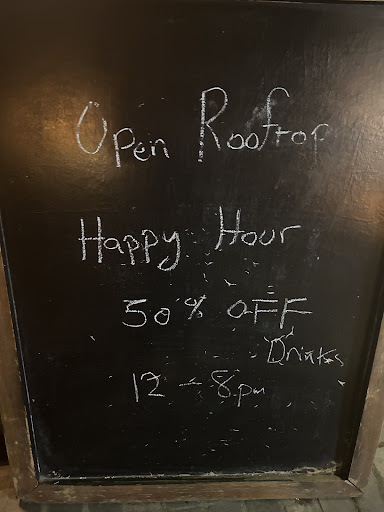 Open Rooftop
Happy Hour
50% OFF
Drinks
12 - 8pm